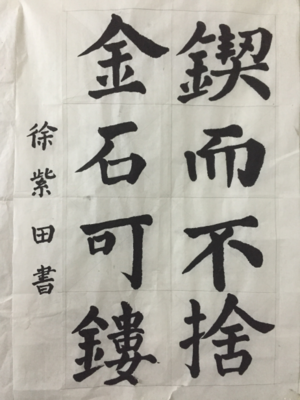 鍥而不捨
金石可鏤
徐紫田書